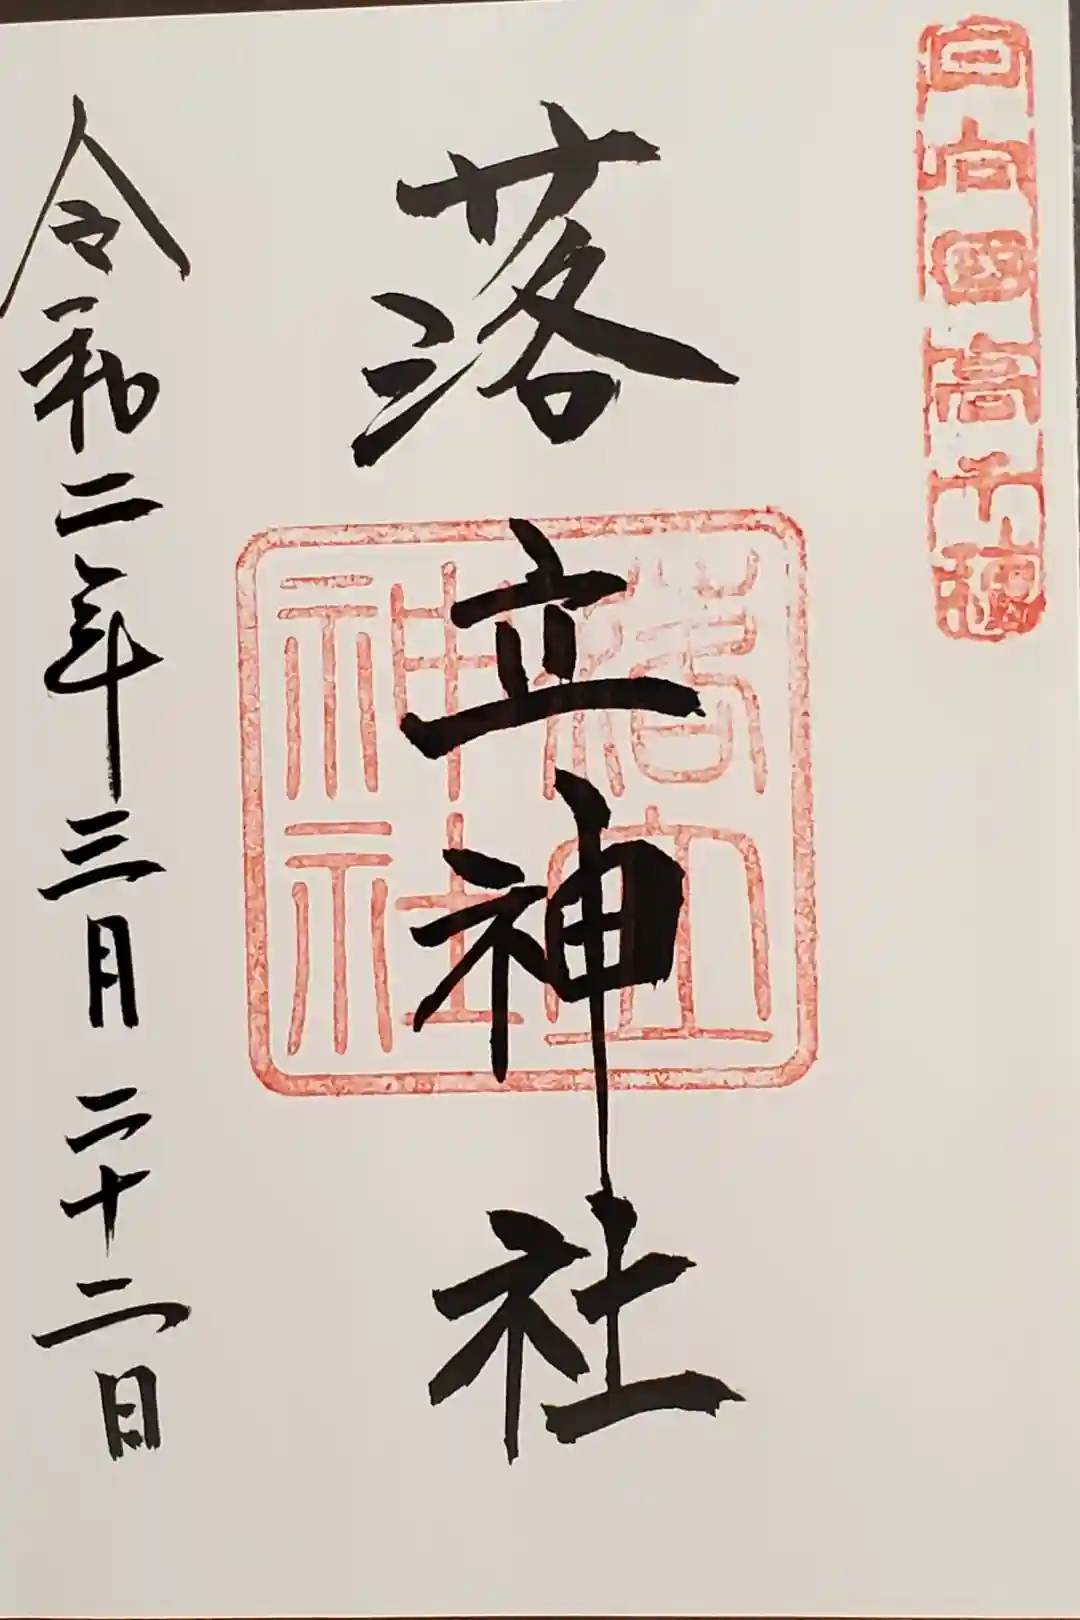 日向國高千穂
落立神社
落立
神社
令和二年三月二十二日